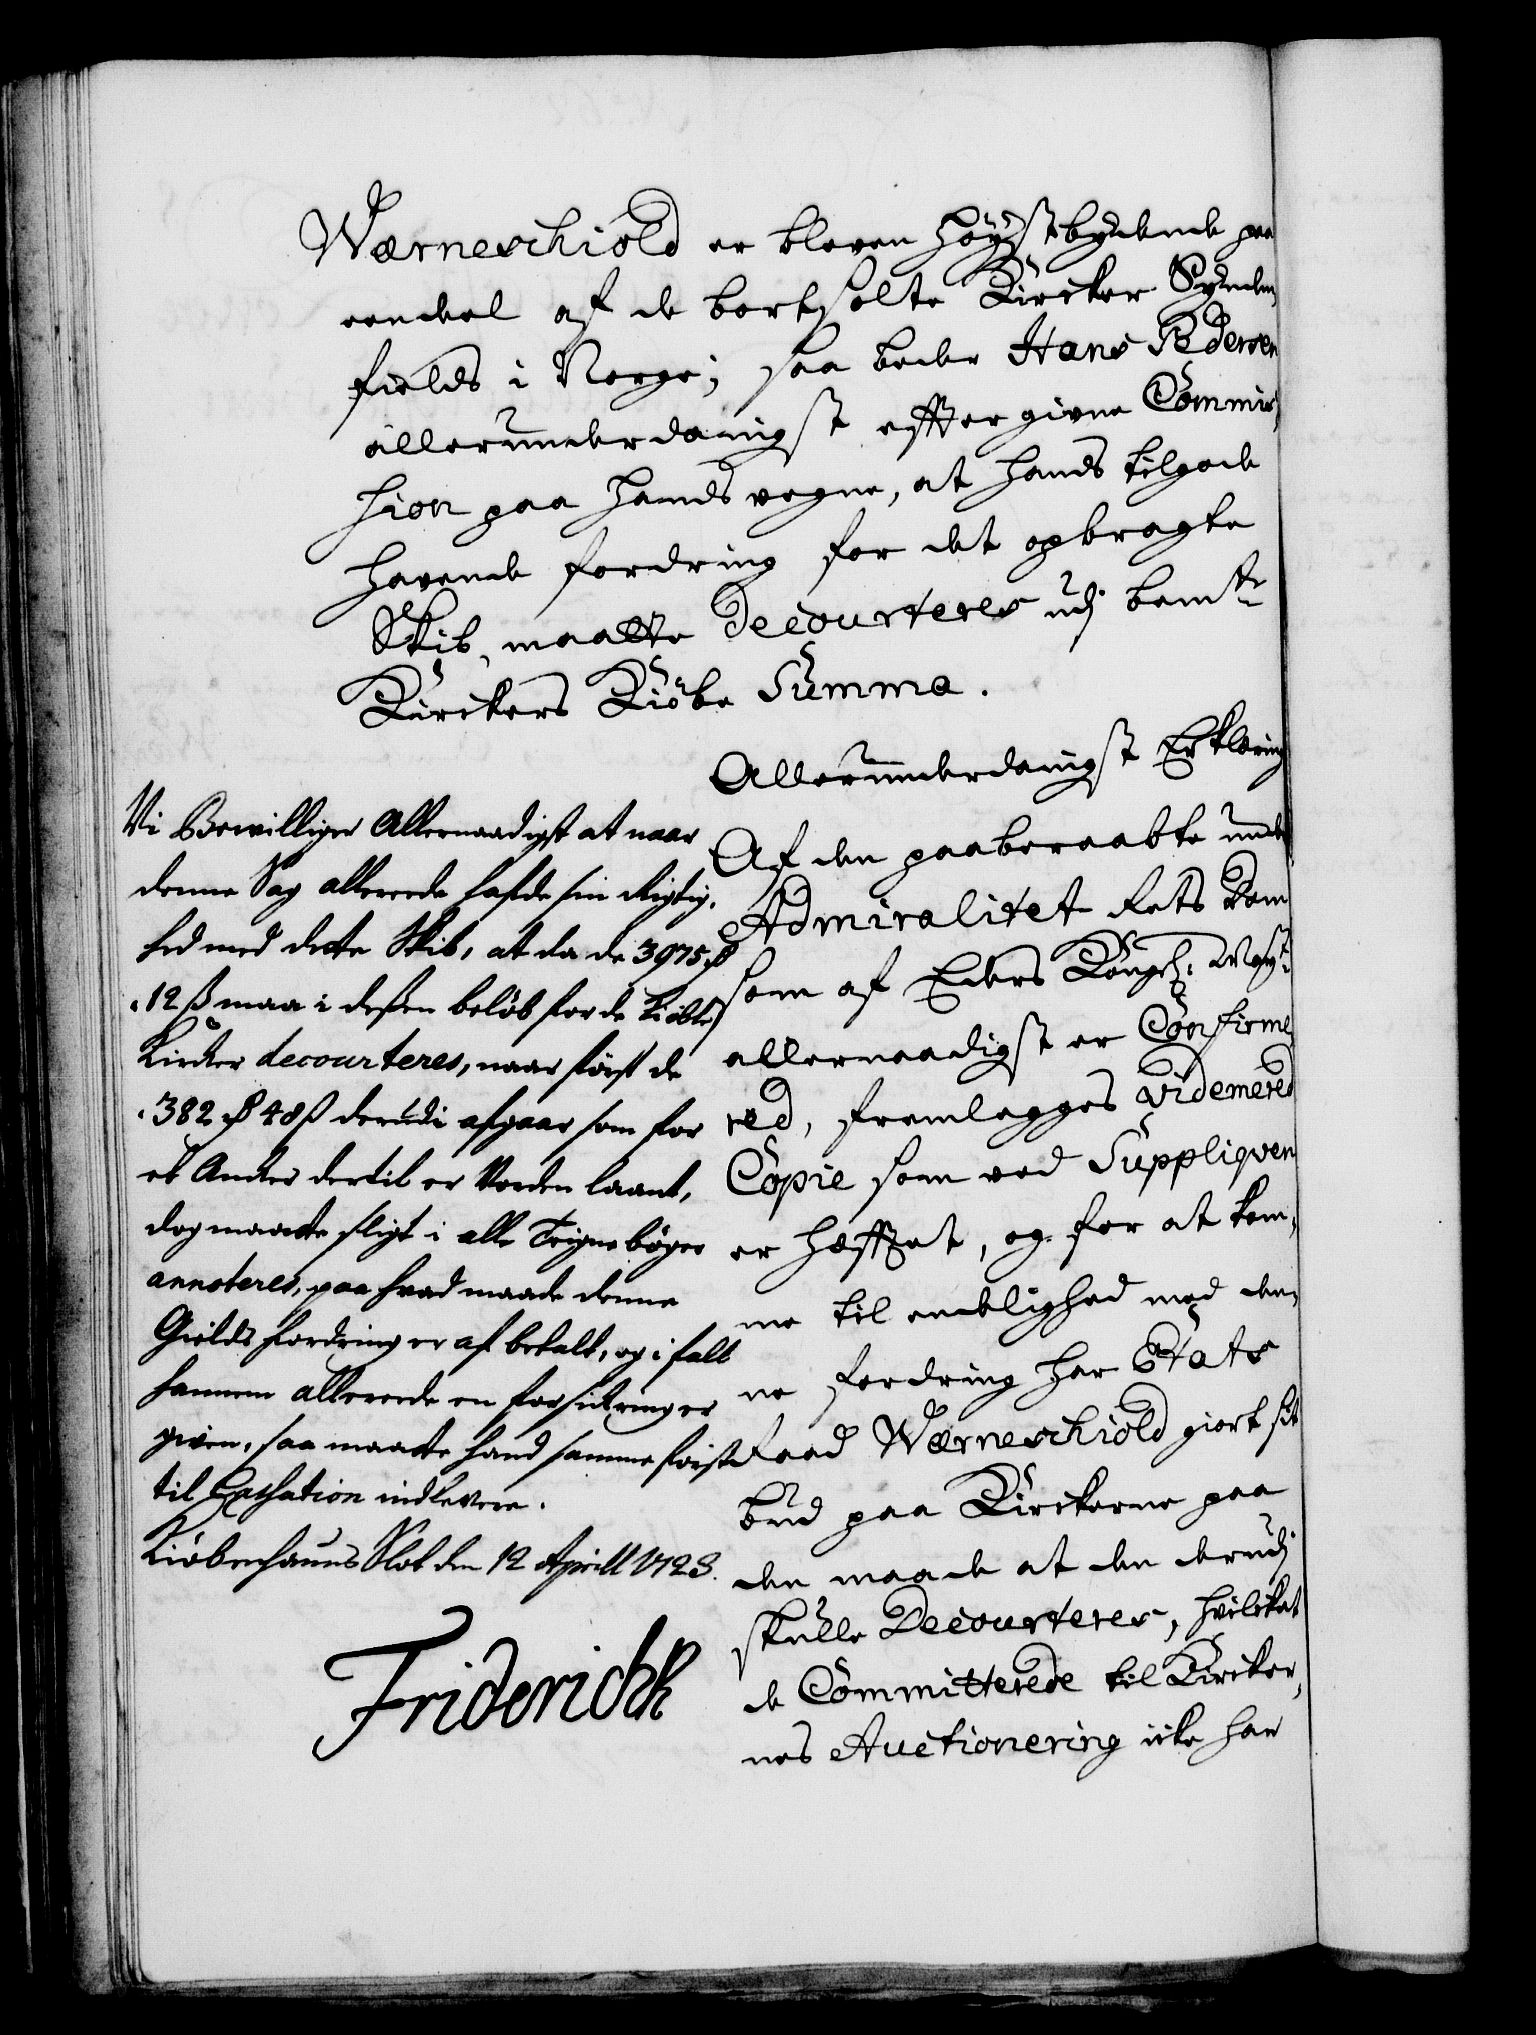 Wærneschiold er bleven høystbydende paa
eendeel af de bortsolte Kircker Synden,
fields i Norge; saa beder Hans Pedersen
allerunderdanigst effter givne Commis,
hion paa hands vegne, at hands tilgode
havende fordring for det opbragte
Skib, maatte decourteres udj bemte
Kirckers Kiöbe Summa.
Allerunderdanigst Erklæring
Af den paaberaabte under
Admiralitet Rets Dom
som af Eders Kongel: Mayts
allernaadigst er Confirme
red, fremlegges videmered
Copie som ved Suppliqven
er hæfftet, og for at kom,
me til endelighed med den,
ne fordring har Etats
Raad Wærneschiold giort sit
bud paa Kirckerne paa
den maade at den derudj
skulle Decourteres, hvilcket
de Committerede til Kircker,
nes Auctionering icke har
Vi Bevilliger Allernaadigst at naar
denne Sag allereede hafde sin Rigtig,
hed med dette Skib, at da de 3975 rdr
12 ß maa i deßen beløb for de kiöbte
Kircker decourteres, naar först de
382 rdr 48 ß derudi afgaar som for
et Ancker dertil er Vorden laant,
dog maatte sligt i alle Teigne bøger
annoteres, paa hvad maade denne
Gields fordring er af betalt, og i fald
hannem allereede en forsickring er
given, saa maatte hand samme först
til Cashation indlevere.
Kiöbenhauns Slot den 12 Aprill 1723.
Friderich R